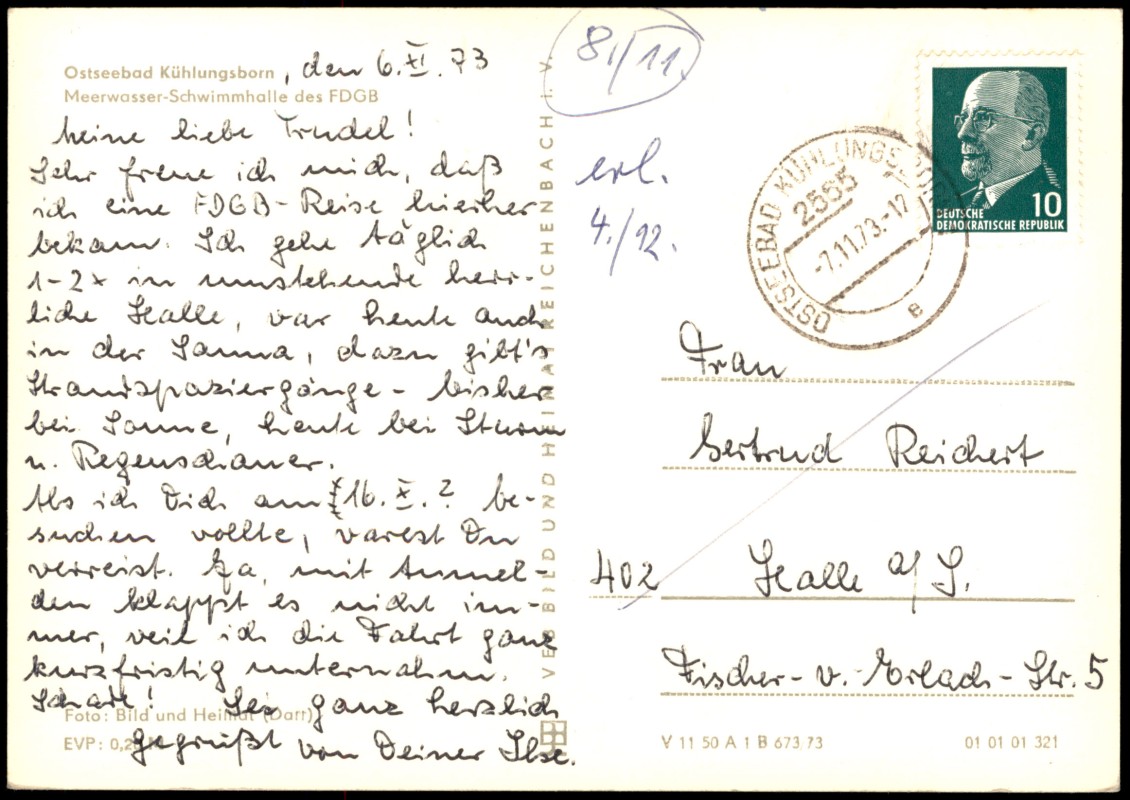 Ostseebad Kühlungsborn, den 6. XI. 73
Meerwasser-Schwimmhalle des FDGB
Meine liebe Trudel!
Sehr freue ich mich, daß
ich eine FDGB-Reise hierher
bekam. Ich gehe täglich
1-2x in umstehende herr-
liche Halle, war heute auch
in der Sauna, dazu gibt's
Strandspaziergänge - bisher
bei Sonne, heute bei Sturm
u. Regenschauer.
Als ich Dich am 16. X. ? be-
suchen wollte, warest Du
verreist. Ja, mit Anmel-
den klappt es nicht im-
mer, weil ich die Fahrt ganz
kurzfristig unternahm.
Schade! Sei ganz herzlich
gegrüßt von Deiner Ilse.
Foto: Bild und Heimat (Darr)
EVP: 0,20
VEB BILD UND HEIMAT REICHENBACH I. V.
8./11.
erl.
4./12.
OSTSEEBAD KÜHLUNGSBORN
2565
-7.11.73.-17
e
DEUTSCHE
DEMOKRATISCHE REPUBLIK
10
Frau
Gertrud Reichert
402 Halle a/S.
Fischer-v.-Erlach-Str. 5
V 11 50 A 1 B 673/73
01 01 01 321